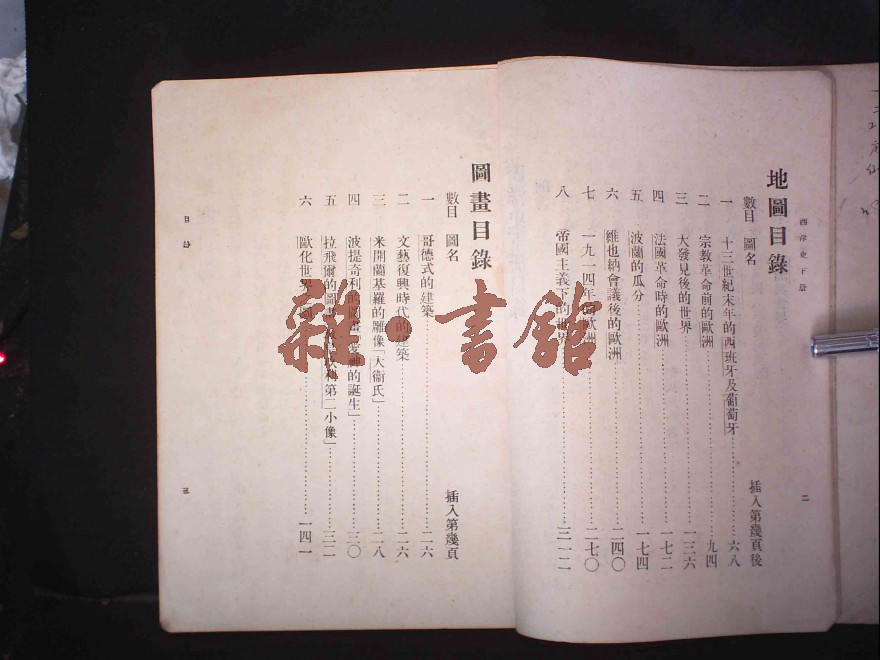 西洋史下册
地圖目錄
數目 圖名 插入第幾頁後
一 十三世紀末年的西班牙及葡萄牙 六八
二 宗教革命前的歐洲 九四
三 大發見後的世界 一三六
四 法國革命時的歐洲 一七二
五 波蘭的瓜分 一七四
六 維也納會議後的歐洲 二四〇
七 一九一四年的歐洲 二七〇
八 帝國主義下的世界 三一二
二
圖畫目錄
數目 圖名 插入第幾頁
一 哥德式的建築 二六
二 文藝復興時代的建築 二六
三 米開蘭基羅的雕像「大衞氏」 二八
四 波提奇利的圖畫「愛神的誕生」 三〇
五 拉飛爾的圖畫 利第二小像」 三二
六 歐化世界 圖 一四一
目錄
三
雜·書館